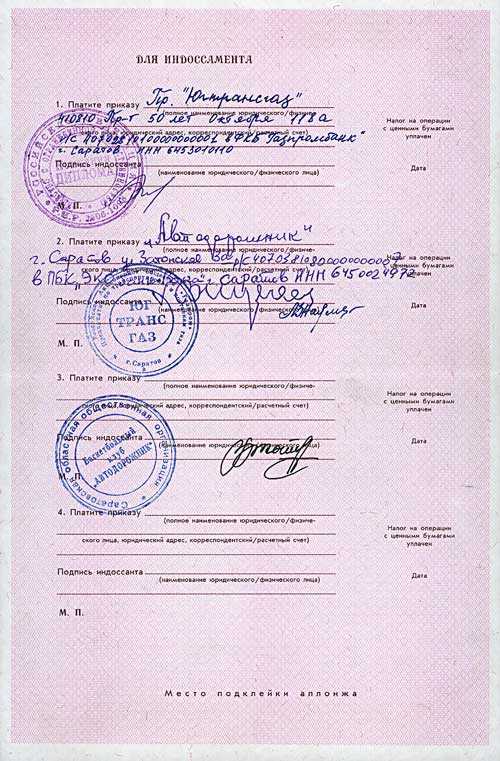 ДЛЯ ИНДОССАМЕНТА
1. Платите приказу Пр. "Югтрансгаз"
(полное наименование юридического/физиче-
410810 Пр-т 50 лет Октября 118а
ского лица, юридический адрес, корреспондентский/расчетный счет)
ФКБ "Газпромбанк"
г. Саратов ИНН 6453010110
Подпись индоссанта
(наименование юридического/физического лица)
М. П.
Налог на операции
с ценными бумагами
уплачен
Дата
ДИПЛОМА
2. Платите приказу "Автодорожник"
(полное наименование юридического/физиче-
г. Саратов
ского лица, юридический адрес, корреспондентский/расчетный счет)
г. Саратов ИНН
Подпись индоссанта
М. П.
Налог на операции
с ценными бумагами
уплачен
Дата
ЮГ
ТРАНС
ГАЗ
г. Саратов
3. Платите приказу
(полное наименование юридического/физиче-
ского лица, юридический адрес, корреспондентский/расчетный счет)
Подпись индоссанта
(наименование юридического/физического лица)
М. П.
Налог на операции
с ценными бумагами
уплачен
Дата
Саратовская областная общественная организация
Баскетбольный
клуб
"АВТОДОРОЖНИК"
4. Платите приказу
(полное наименование юридического/физиче-
ского лица, юридический адрес, корреспондентский/расчетный счет)
Подпись индоссанта
(наименование юридического/физического лица)
М. П.
Налог на операции
с ценными бумагами
уплачен
Дата
Место подклейки аллонжа